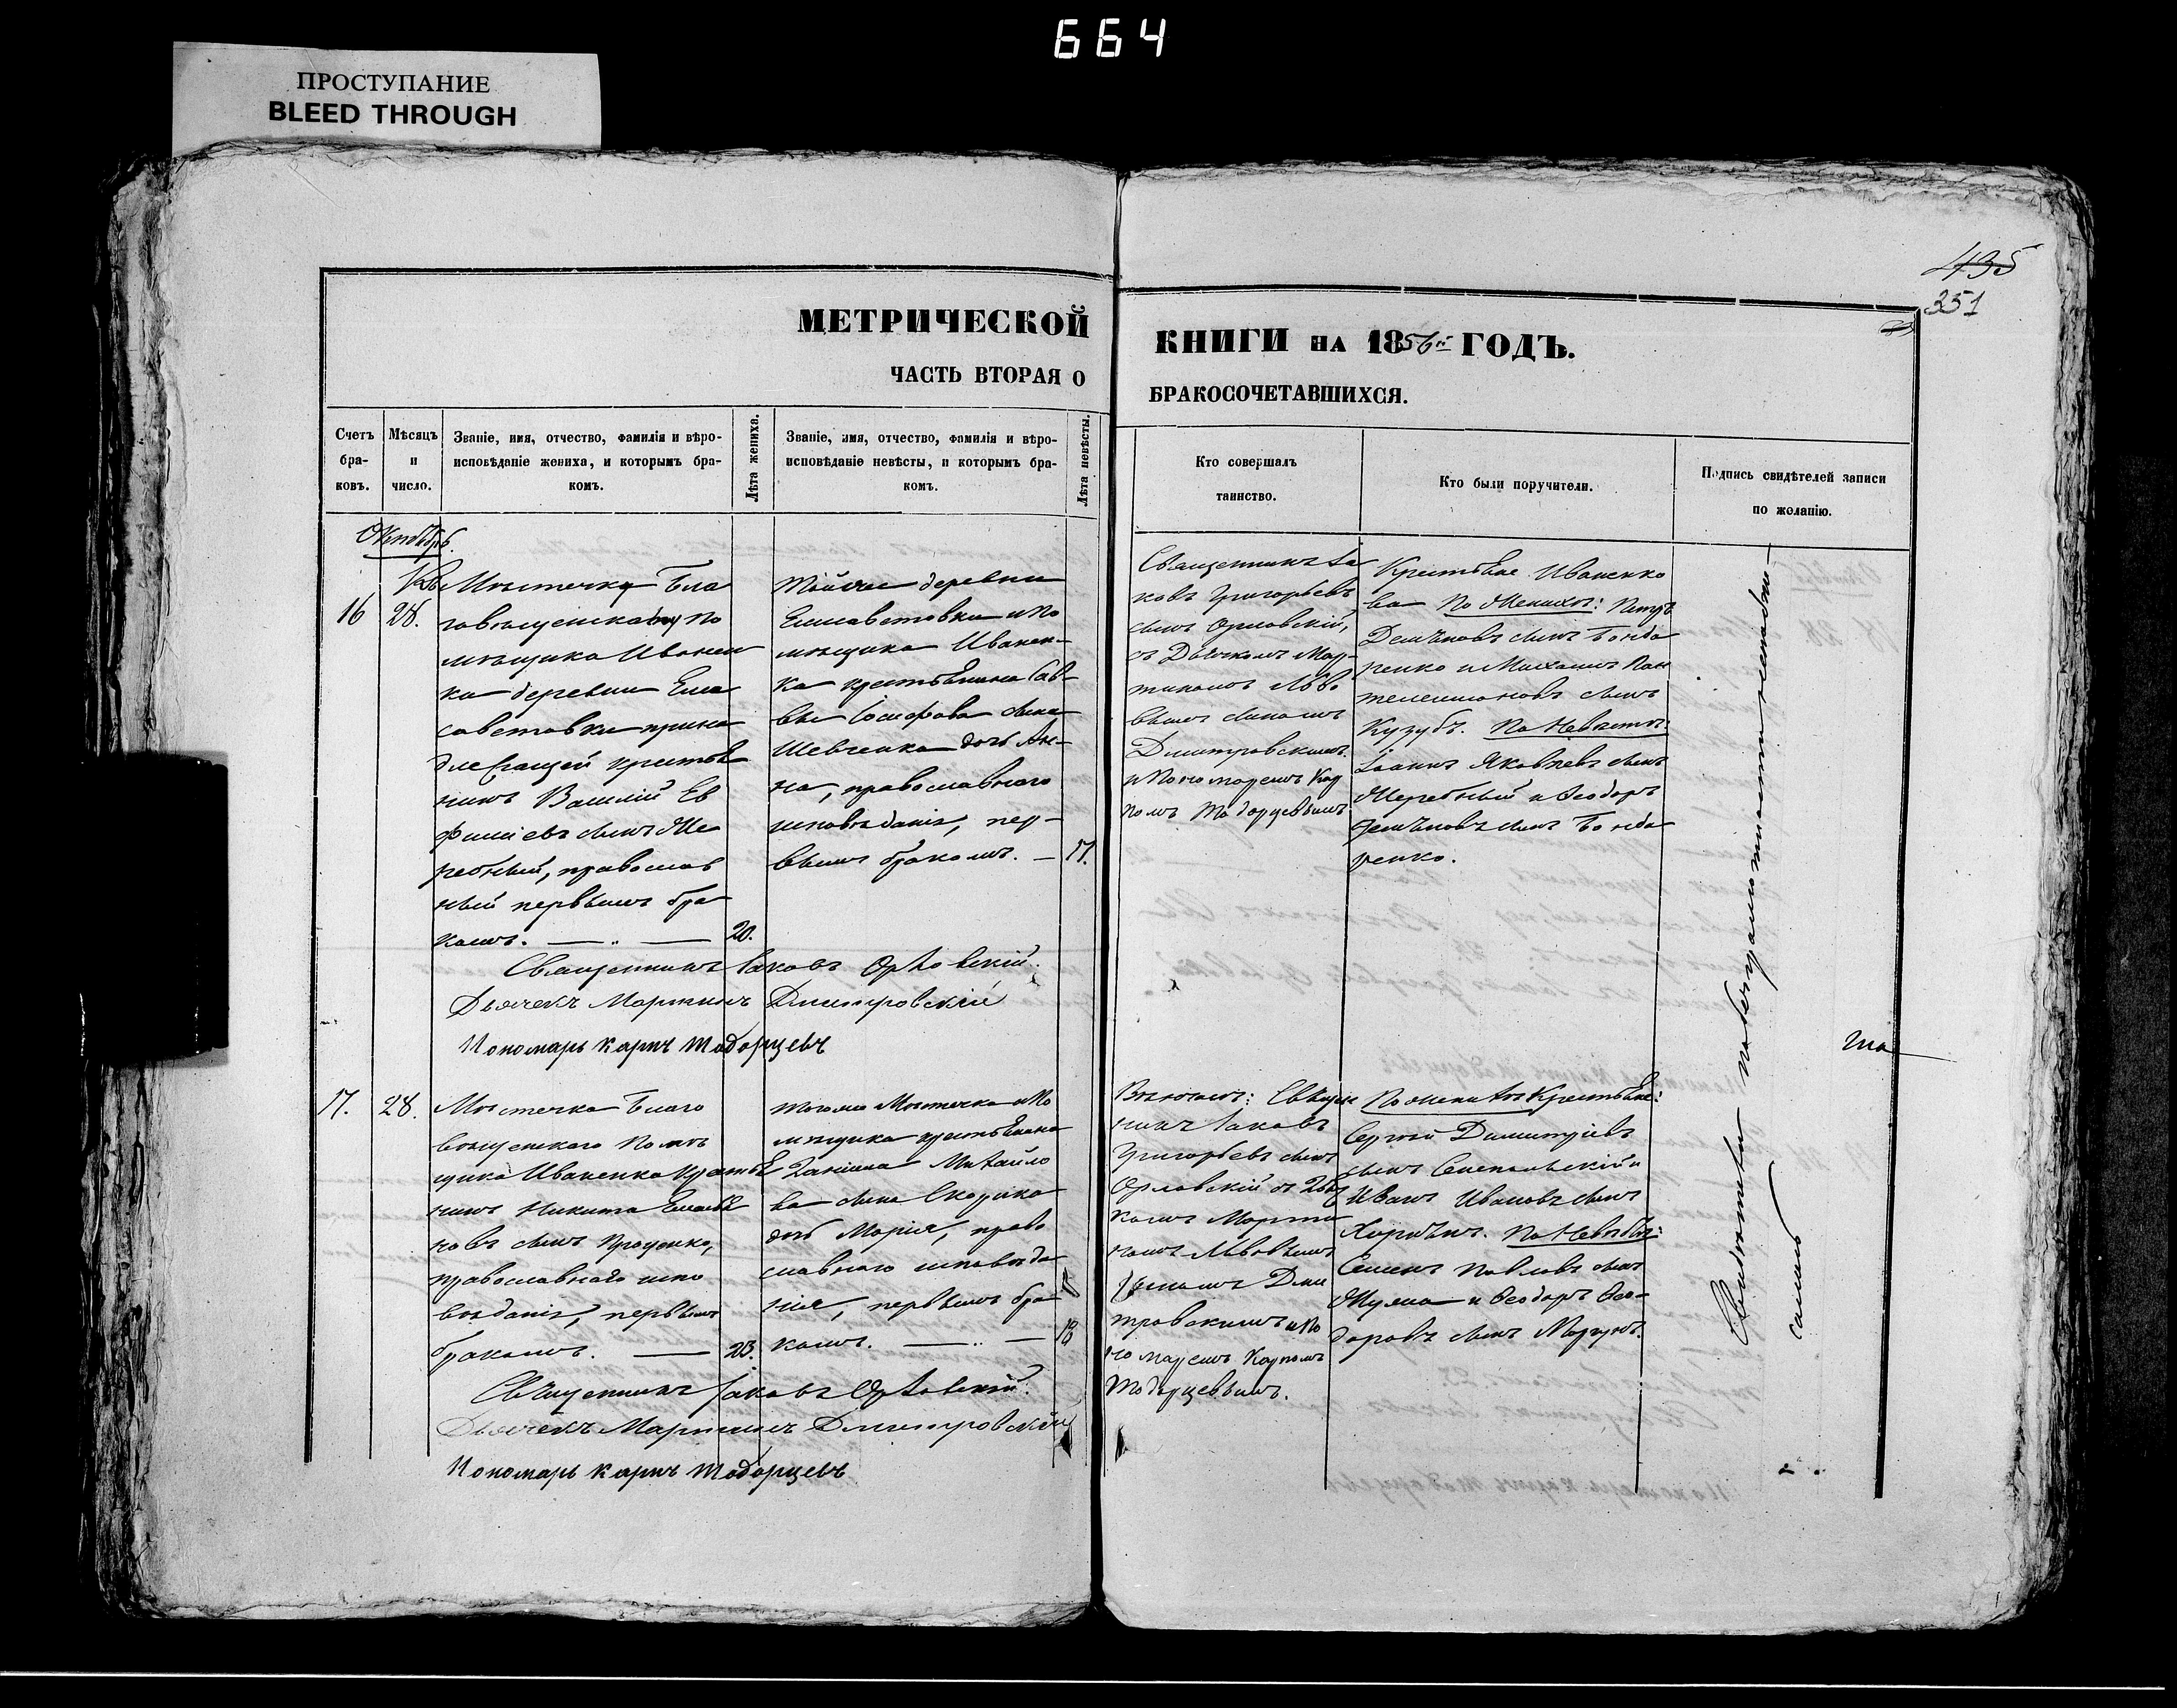 664
ПРОСТУПАНИЕ
BLEED THROUGH
435
351
МЕТРИЧЕСКОЙ
КНИГИ НА 1856й ГОДЪ.
ЧАСТЬ ВТОРАЯ О
БРАКОСОЧЕТАВШИХСЯ.
Счетъ бра-ковъ.
Мѣсяцъ и число.
Званіе, имя, отчество, фамилія и вѣро-
исповѣданіе жениха, и которымъ бра-
комъ.
Лѣта жениха.
Званіе, имя, отчество, фамилія и вѣро-
исповѣданіе невѣсты, и которымъ бра-
комъ.
Лѣта невѣсты.
Кто совершалъ
таинство.
Кто были поручители.
Подпись свидѣтелей записи
по желанію.
Октябрь.
16
28.
Мѣстечку Бла
говѣщенскому по
мѣщика Иванен
ка деревни Ели
саветовки прина
длежащей крестья
нинъ Василій Ев
фиміевъ сынъ Же
ребный, православ
ный первымъ бра
комъ.
20.
Тойже деревни
Елисаветовки и по
мѣщика Иванен-
ка крестьянина Сав-
вы Іосифова сына
Шевченка дочь Ан-
на, православнаго
исповѣданія, пер-
вымъ бракомъ. — 17.
Священникъ Іа
ковъ Григорьевъ
сынъ Орловскій,
съ Дьячкомъ Мар-
тиномъ Льво
вымъ сыномъ
Дмитровскимъ
и Пономаремъ Кар
помъ Тодорцевымъ
Крестьяне Иваненко
ва По Женихѣ: Петръ
Демьяновъ сынъ Бонда
ренко и Михаилъ Пан
телеимоновъ сынъ
Кузубъ. По Невѣстѣ:
Іоаннъ Яковлевъ сынъ
Жеребный и Ѳеодоръ
Демьяновъ сынъ Бонда
ренко.
Священникъ Іаковъ Орловскій.
Дьячекъ Мартинъ Дмитровскій
Пономарь Карпъ Тодорцевъ
17.
28.
Мѣстечка Благо
вѣщенскаго помѣ
щика Иваненка крестья
нинъ Никита
новъ сынъ Проценко,
православнаго испо
вѣданія, первымъ
бракомъ. — 23.
Тогоже Мѣстечка и по
мѣщика крестьянина
Даніила Михайло
ва сына Скорика
дочь Марія, право
славнаго исповѣда
нія, первымъ бра
комъ. — 18
Вѣнчалъ: Священ
никъ Іаковъ
Григорьевъ сынъ
Орловскій съ Дьяч
комъ Марти
номъ Львовымъ
сыномъ Дми
тровскимъ и По
номаремъ Карпомъ
Тодорцевымъ.
По женихѣ Крестьяне:
Сергѣй Димитріевъ
сынъ и
Иванъ Ивановъ сынъ
По Невѣстѣ:
Семенъ Павловъ сынъ
и Ѳеодоръ Ѳео-
доровъ сынъ Моргунъ.
Священникъ Іаковъ Орловскій.
Дьячекъ Мартинъ Дмитровскій
Пономарь Карпъ Тодорцевъ
Свидѣтели по безграмотности неподпи-
сались